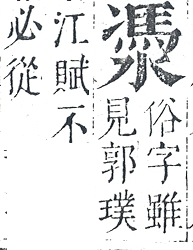 俗字雖
見郭璞
江賦不
必從